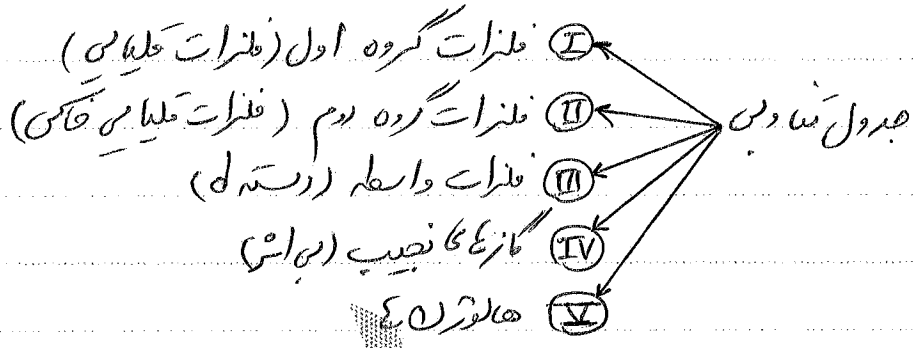 I فلزات گروه اول (فلزات قلیایی)
II فلزات گروه دوم (فلزات قلیایی خاکی)
جدول تناوبی
III فلزات واسطه (دسته d)
IV گازهای نجیب (بی اثر)
V هالوژن ها